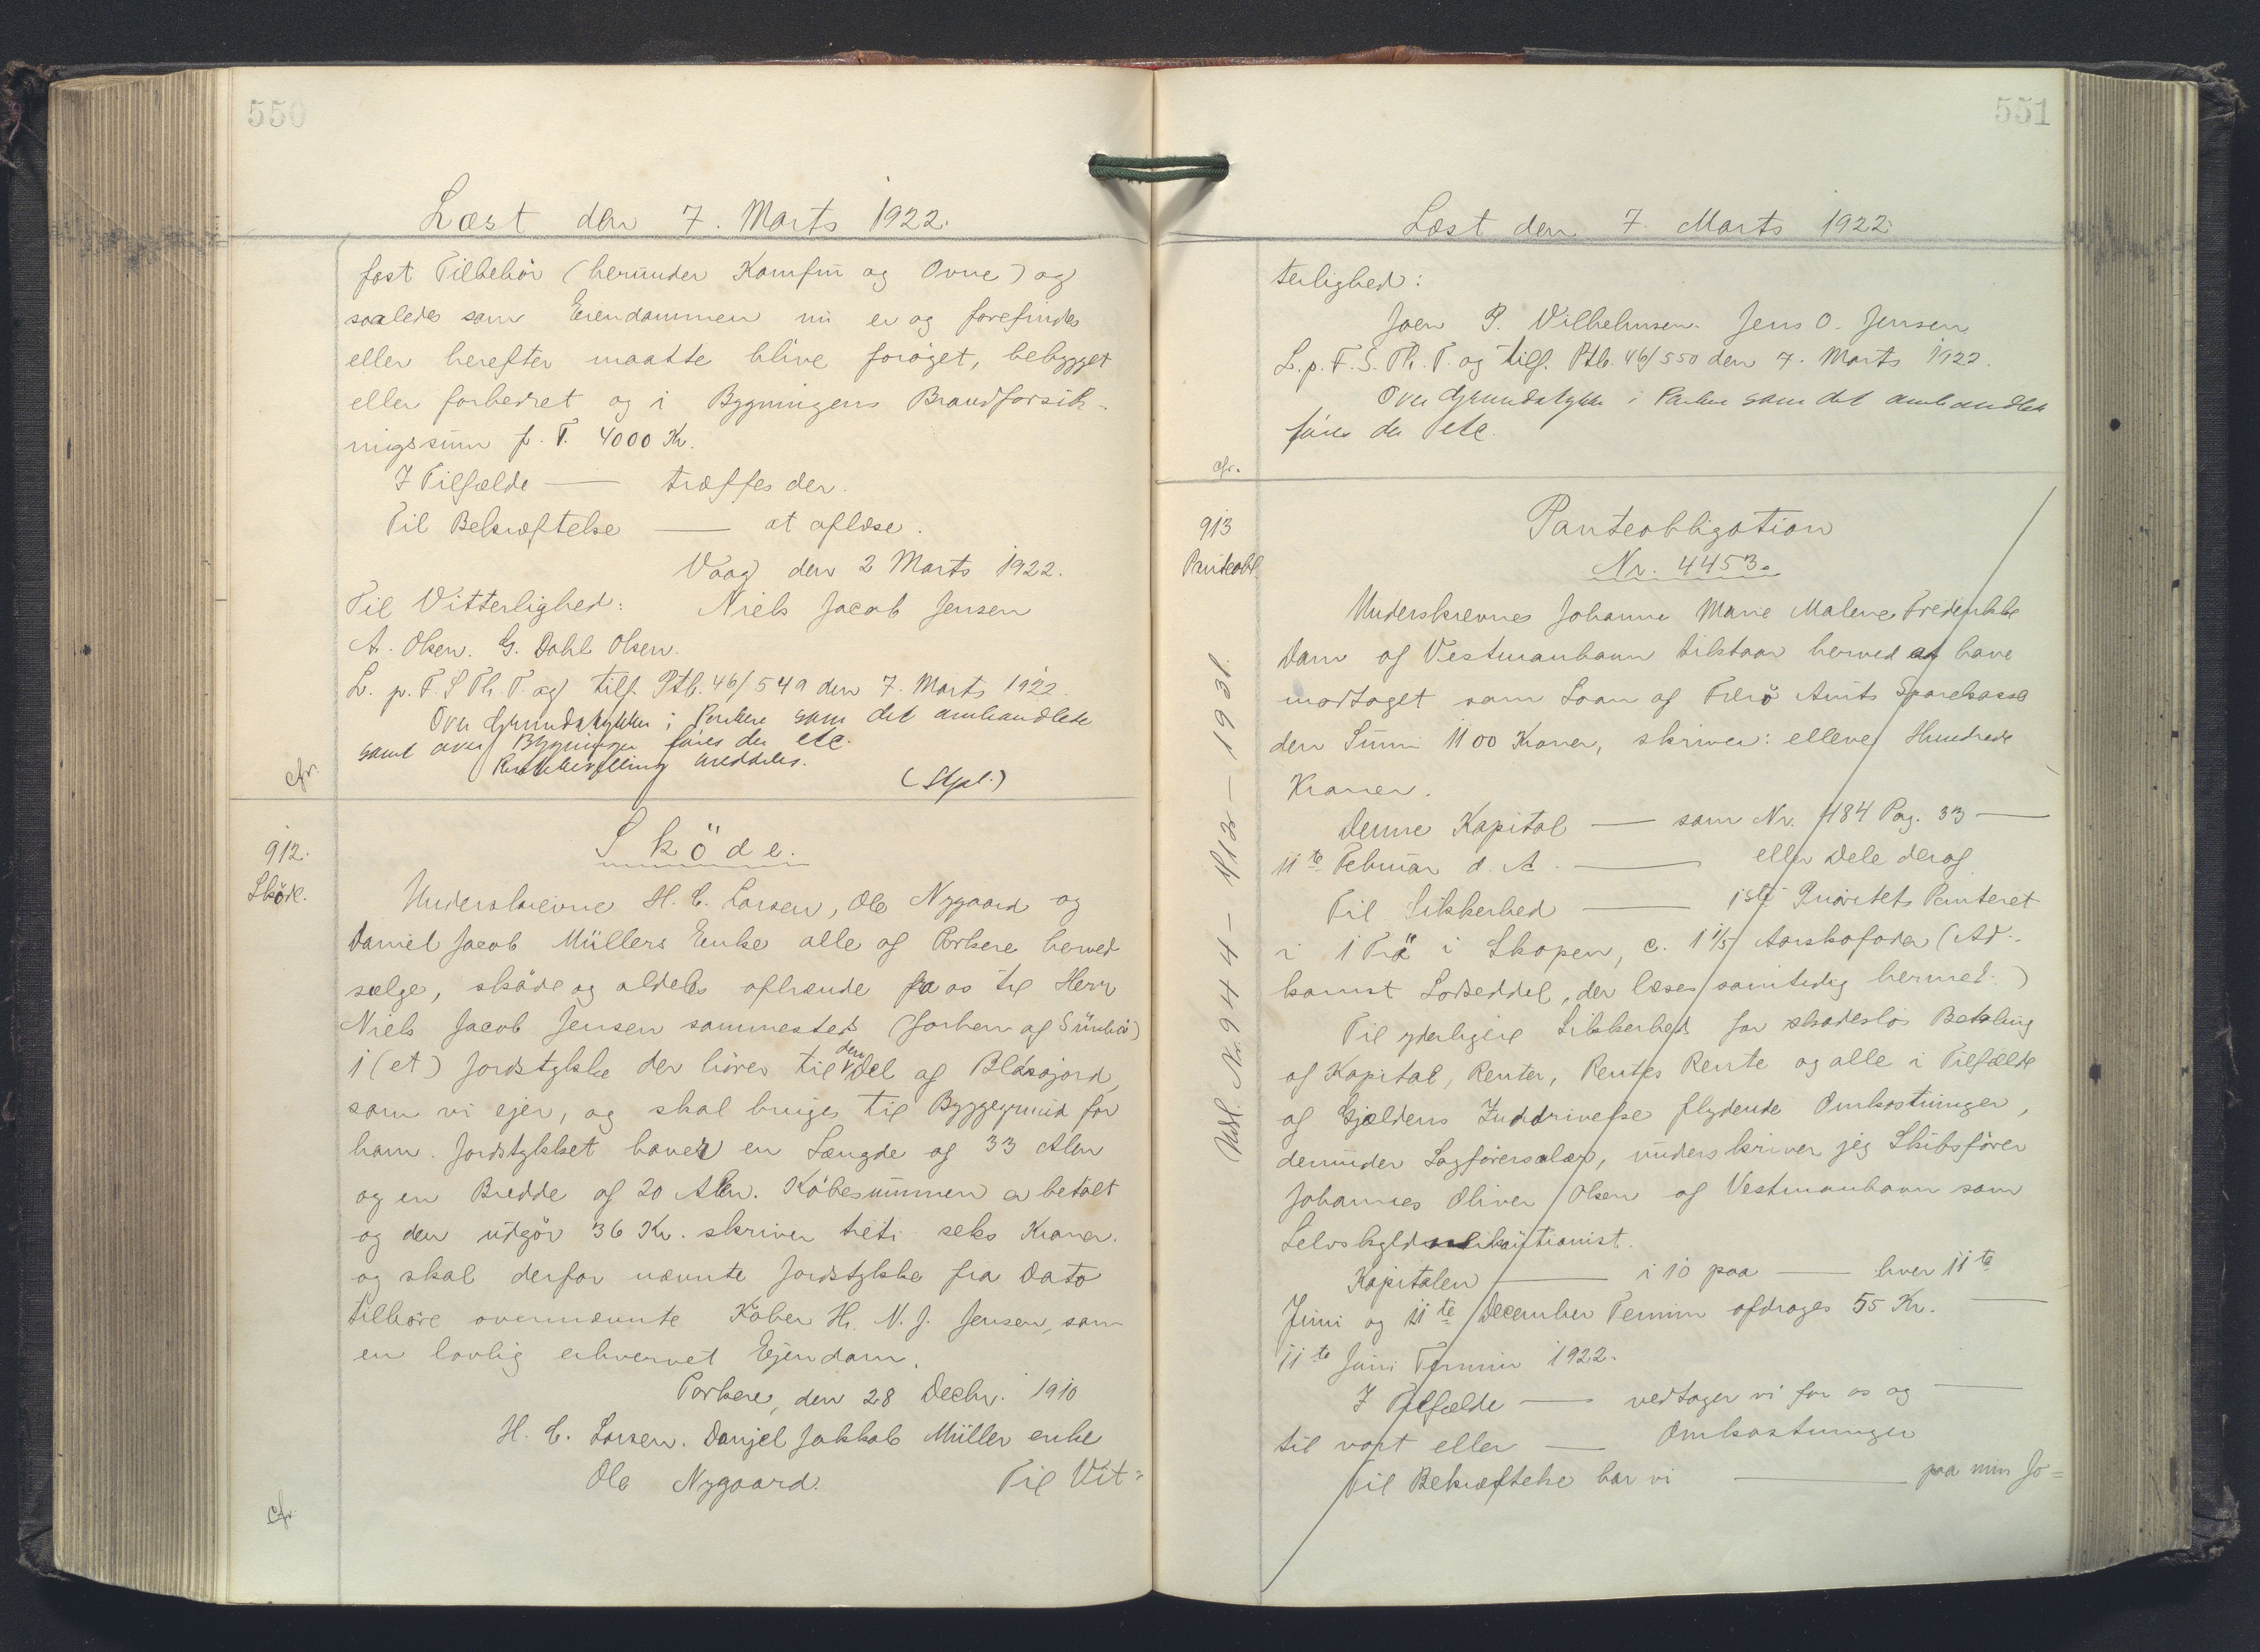 550
Læst den 7. Marts 1922.
fast Tilbehör (herunder Komfur og Ovne) og
saaledes som Eiendommen nu er og forefindes
eller herefter maatte blive forøget, bebygget
eller forbedret og i Bygningens Brandforsik-
ringssum p. T. 4000 Kr.
I Tilfælde — træffes der.
Til Bekræftelse — at aflæse.
Vaag den 2 Marts 1922.
Til Vitterlighed: Niels Jacob Jensen
A. Olsen. G. Dahl Olsen.
L. p. F. S Th. T. og tilf. Ptb. 46/549 den 7. Marts 1922.
Over Grundstykke i Porkere som det ombandlede
samt over Bygninger føres der etc.
meddeles.
(Stpl.)
cfr.
912.
Sköde.
Sköde.
Underskrevne H. C. Larsen, Ole Nygaard og
Daniel Jacob Müllers Enke alle af Porkere herved
sælge, sköde og aldeles afhænde fra os til Herr
Niels Jacob Jensen sammesteds (forhen af Sünbö)
1 (et) Jordstykke der hörer til den Del af Blásajord,
som vi ejer, og skal bruges til Byggegrund for
ham. Jordstykket haver en Længde af 33 Alen
og en Bredde af 20 Alen. Köbesummen er betalt
og den udgör 36 Kr. skriver treti seks Kroner.
og skal derfor nævnte Jordstykke fra Dato
tilhöre overnævnte Köber Hr. N. J. Jensen, som
en lovlig erhvervet Ejendom.
Porkere, den 28 Decbr. 1910
H. C. Larsen. Danjel Jakkob Müller enke
Ole Nygaard. Til Vit-
cfr.
551
Læst den 7. Marts 1922
terlighed:
Joen P. Vilhelmsen. Jens O. Jensen
L. p. F. S. Th. T. og tilf. Ptb. 46/550 den 7. Marts 1922.
Over Grundstykke i Porkere som det ombandlede
føres der etc.
cfr.
913
Panteobl.
Panteobligation
Nr. 4453.
Underskrevnes Johanne Marie Malene Frederikke
Dam af Vestmanhavn tilstaar herved at have
modtaget som Laan af Færö Amts Sparekasse
den Sum 1100 Kroner, skriver: elleve Hundrede
Kroner.
Denne Kapital — som Nr. 484 Pag. 33 —
11te Februar d. A. — eller Dele deraf
Til Sikkerhed — 1ste Prioritets Panteret
i 1 Trö i Skopen, c. 1 1/5 Aarskofoder (Ad-
komst Lodseddel, der læses samtidig hermed.)
Til yderligere Sikkerhed for skadeslös Betaling
af Kapital, Renter, Rentes Rente og alle i Tilfælde
af Gjældens Inddrivelse flydende Omkostninger,
derunder Sagförersalær, underskriver jeg Skibsförer
Johannes Oliver Olsen af Vestmanhavn som
Selvskyldnerkautionist.
Kapitalen — i 10 paa — hver 11te
Juni og 11te December Termin afdrages 55 Kr. —
11te Juni Termin 1922.
I Tilfælde — vedtager vi for os og —
til vort eller — Omkostninger
Til Bekræftelse har vi — paa min Jo=
Udsl. Nr. 944 — 1931.